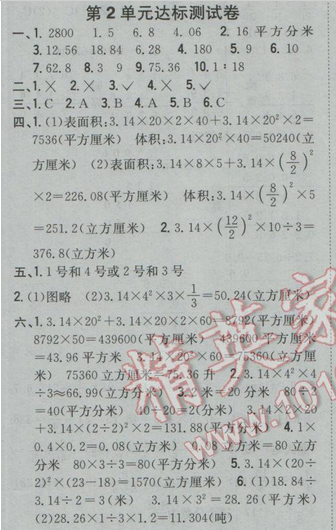 第2单元达标测试卷
一、1. 2800 1.5 6.8 4.06 2. 16平方分米
3. 12.56 18.84 6.28 4. 180 5. 9 6. 10
7. 62.8 8. 3 9 9. 75.36 10. 1∶18
二、1. × 2. × 3. ✓ 4. × 5. ✓
三、1. C 2. A 3. B 4. A 5. B 6. C
四、1. (1)表面积:3.14×20×2×40+3.14×20²×2=
7536(平方厘米) 体积:3.14×20²×40=50240(立
方厘米) (2)表面积:3.14×8×5+3.14×(8/2)²
×2=226.08(平方厘米) 体积:3.14×(8/2)²×5
=251.2(立方厘米) 2. 3.14×(12/2)²×10÷3=
376.8(立方米)
五、1. 1号和4号或2号和3号
2. (1)图略 (2)3.14×4²×3×1/3=50.24(立方厘米)
六、1. 3.14×20²+3.14×20×2×60=8792(平方厘米)
8792×50=439600(平方厘米) 439600平方厘米
=43.96平方米 3.14×20²×60=75360(立方厘
米) 75360立方厘米=75.36升 2. 3.14×4²×4
÷3≈66.99(立方分米) 3. 2分米=20厘米 80÷2
=40(平方分米) 40÷20=2(分米) 3.14×2×20
+3.14×(2÷2)²×2=131.88(平方分米) 4. 1×
0.4×0.2=0.08(立方米) 0.08立方米=80立方
分米 80×3÷3=80(平方分米) 5. 3.14×(20÷
2)²×(23-18)=1570(立方厘米) 6. (1)18.84÷
3.14÷2=3(米) 3.14×3²=28.26(平方米)
(2)28.26×1÷3×1.2=11.304(吨)
精英家